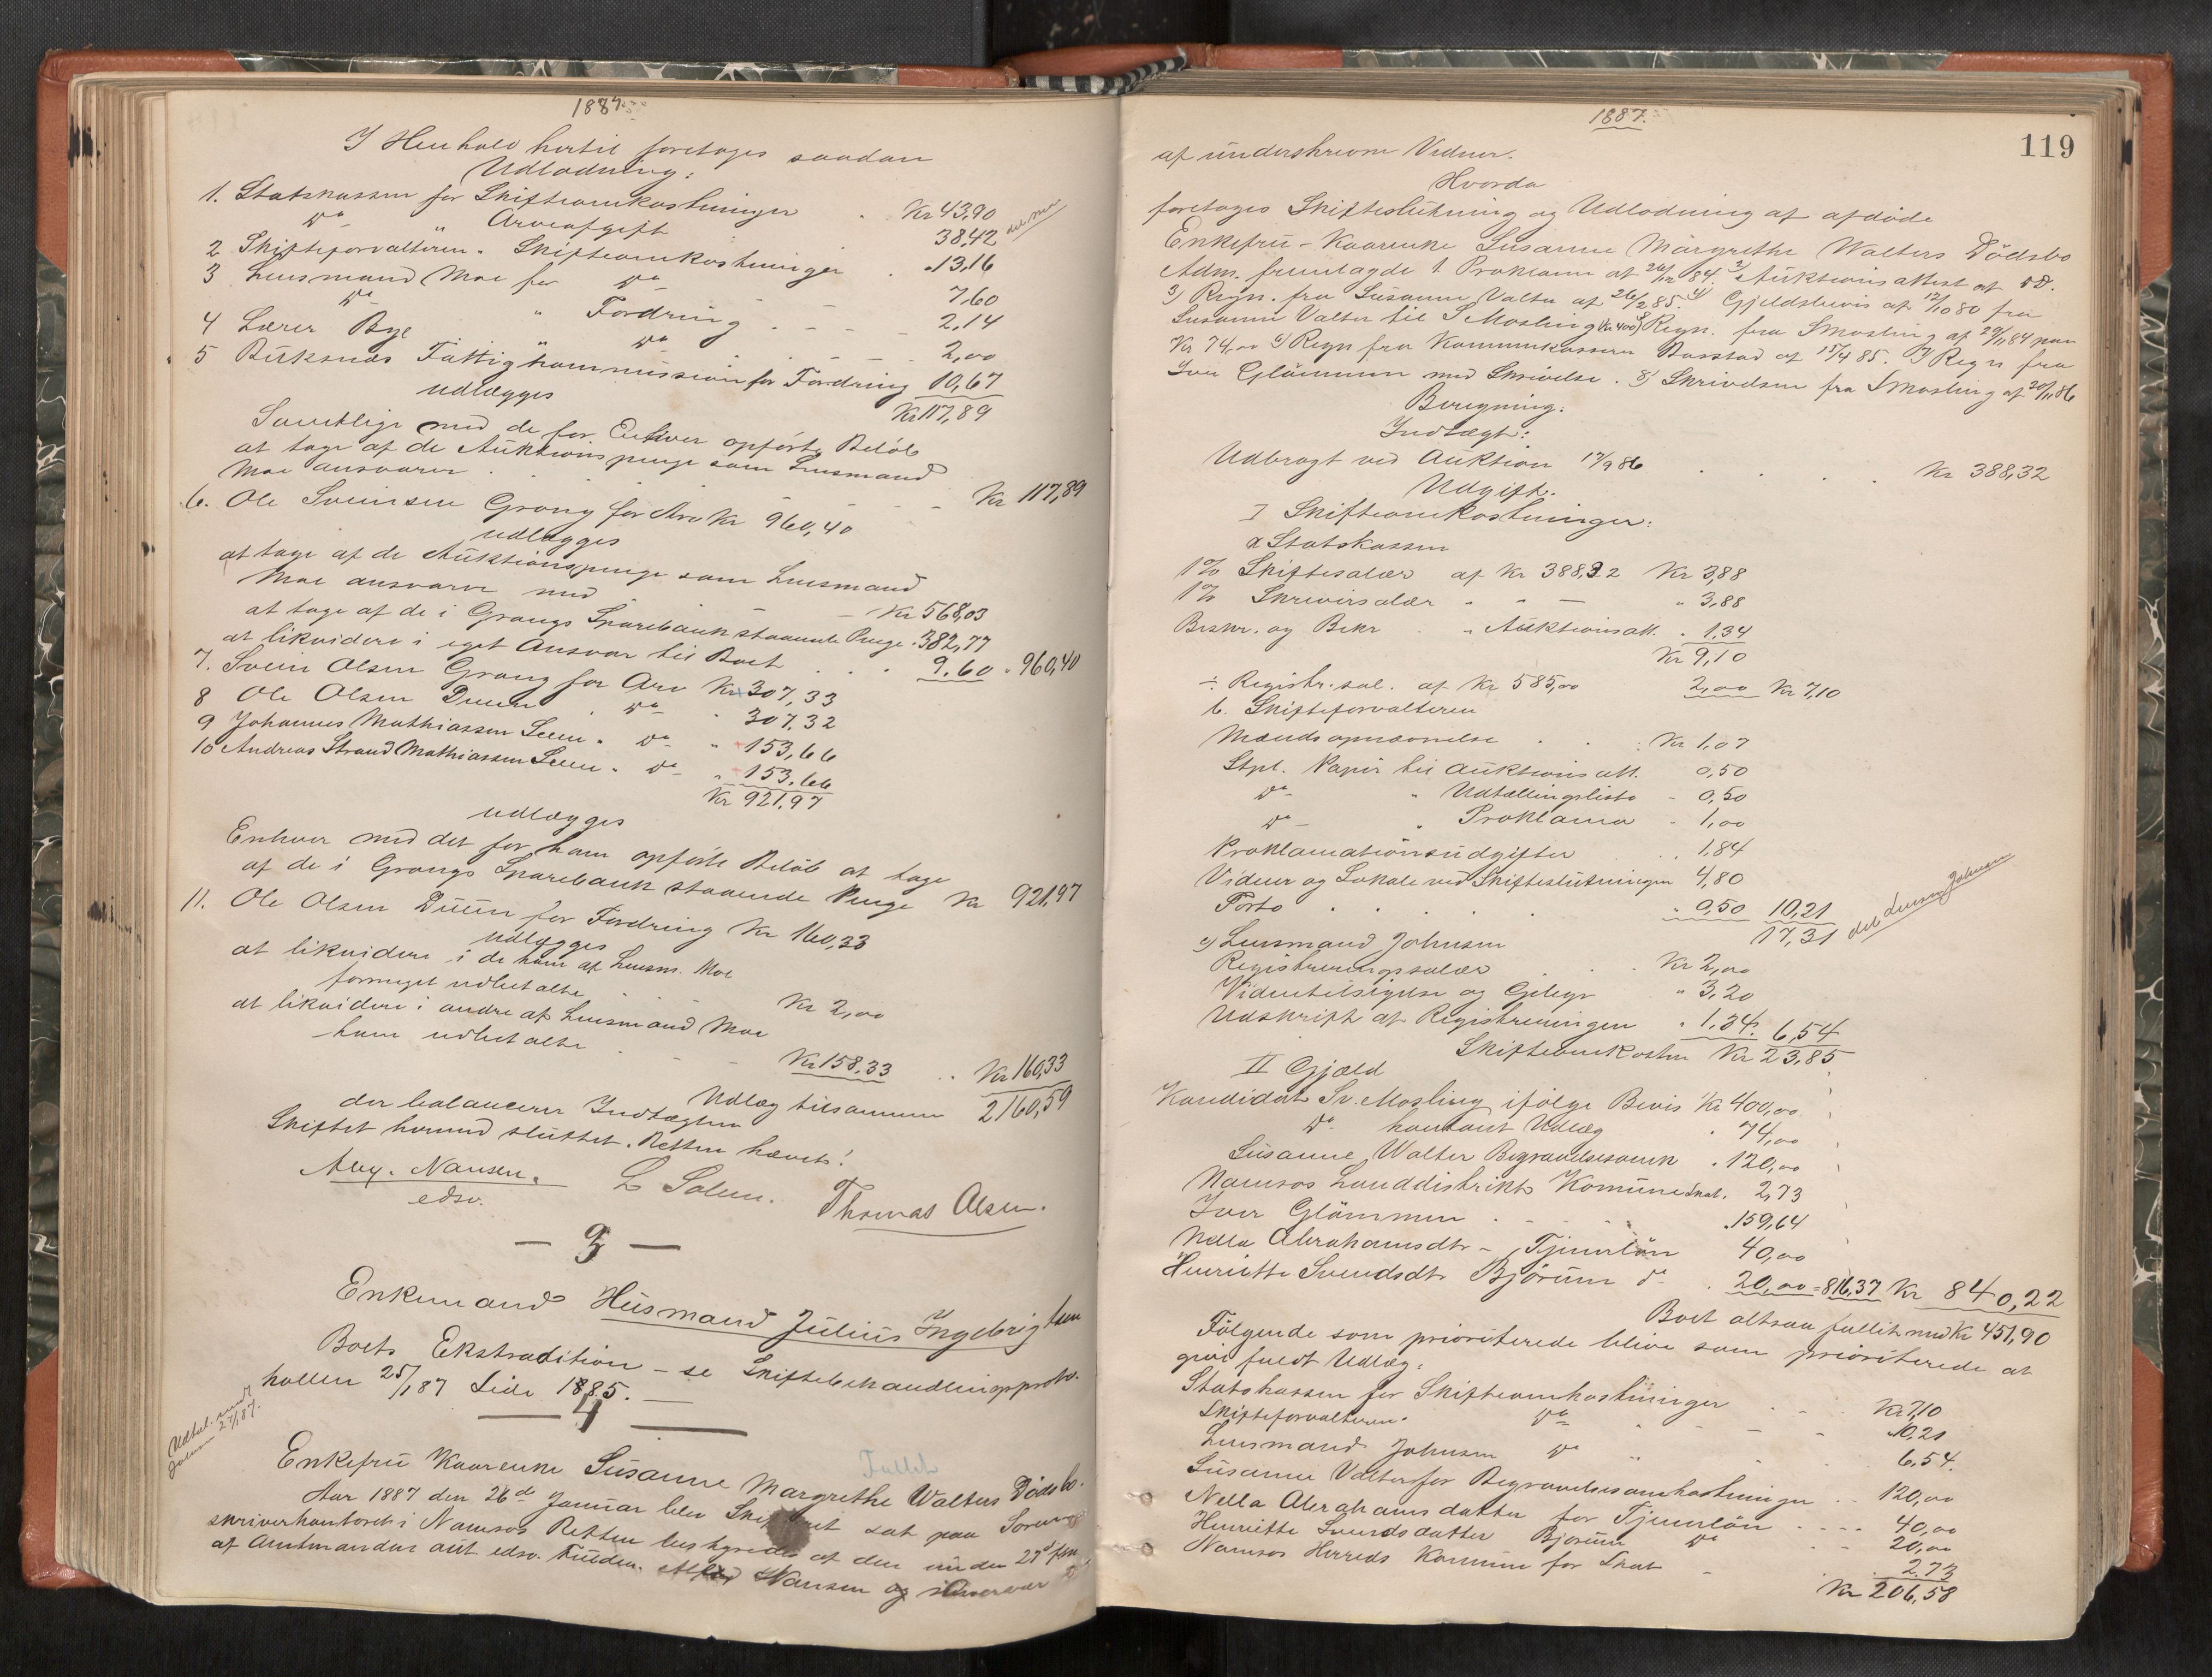 1887.
I Henhold hertil foretages saadan
Udlodning:
1. Statskassen for Skifteomkostninger . Kr 43,90
do " Arveafgift 38,42
2 Skifteforvalteren " Skifteomkostninger . " 13,16
3 Lensmand Moe for do 7,60
do " Fordring . - - - 2,14
4 Lærer Bye do . - - - 2,00
5 Buksnæs Fattigkommission for Fordring 10,67
udlægges Kr 117,89
Samtlige med de for Enhver opførte Beløb
at tage af de Auktionspenge som Lensmand
Moe ansvarer . - - - Kr 117,89
6. Ole Svensen Grong for Arv Kr 960,40
udlægges
at tage af de Auktionspenge som Lensmand
Moe ansvarer med - - Kr 568,03
at tage af de i Grongs Sparebank staaende Penge " 382,77
at likvidere i eget Ansvar til Boet . . . 9.60 " 960,40
7. Svein Olsen Grong for Arv Kr 307,33
8 Ole Olsen Duun " do " 307.32
9 Johannes Mathiassen Seem " do " 153,66
10 Andreas Strand Mathiassen Seem " do " 153.66
Kr 921.97
udlægges
Enhver med det for ham opførte Beløb at tage
af de i Grongs Sparebank staaende Penge Kr 921,97
11. Ole Olsen Duun for Fordring Kr 160,33
udlægges
at likvidere i de ham af Lensm. Moe
formeget udbetalte . . Kr 2,00
at likvidere i andre af Lensmand Moe
ham udbetalte . - - Kr 158.33 . . Kr 160,33
Udlæg tilsammen 2160,59
der balancerer Indtægten
Skiftet hermed sluttet. Retten hævet!
Alex. Nansen. L Solem. Thomas Olsen.
edsv.
— 3 —
Enkemand Husmand Julius Ingebrigtsen
Boets Ekstradition – se Skiftebehandlingsproto-
kollen 25/1 87 Side 1885. —
— 4 —
Udbet. med
Johnsen 27/1 87.
Fallit
Enkefru Kaarenke Susanne Margrethe Walters Dødsbo.
Aar 1887 den 26d Januar blev Skifteret sat paa Soren-
skriverkontoret i Namsos Retten bestyredes af den under 27d
af Amtmanden aut edsv. Fuldm. Nansen og
1887.
119
af underskrevne Vidner.
Hvorda
foretoges Skifteslutning og Udlodning af afdøde
Enkefru - Kaarenke Susanne Margrethe Walters Dødsbo
Adm. fremlagde 1. Proklama af 26/12 84. 2) Auktionsattest af SD.
3) Regn. fra Susanne Valter af 26/2 85. 4) Gjeldsbevis af 12/10 80 fra
Susanne Valter til S Mosling Kr 400 5) Regn. fra S Mosling af 29/11 84 paa
Kr 74,00 6) Regn fra Kommunekassen af 15/4 85. 7) Regn fra
Iver Glømmen med Skrivelse. 8) Skrivelsen fra S Mosling af 30/11 86
Beregning.
Indtægt:
Udbragt ved Auktion 17/9 86 . . . . Kr 388,32
Udgift.
I Skifteomkostninger:
a Statskassen
1% Skiftesalær af Kr 388,32 Kr 3,88
1% Skriversalær " " — " 3,88
Beskr. og Bekr . " Auktionsatt. " 1,34
Kr 9,10
÷ Registr. sal. af Kr 585,00 2,00 Kr 7,10
b. Skifteforvalteren
Mændsopnævnelse . . : Kr 1,07
Stpl. Papir til Auktionsatt. 0,50
do " Udtællingsliste - 0,50
do " Proklama - 1,00
Proklamationsudgifter . . 1,84
Vidner og Lokale ved Skifteslutningen 4,80
Porto . . . . . " 0,50 10,21
17,31
c) Lensmand Johnsen
Registreringssalær . . Kr 2,00
Vidnetilsigelse og Gebyr " 3,20
Udskrift af Registreringen " 1,34. 6,54
Skifteomkostn Kr 23,85
II Gjæld
Kandidat Sv. Mosling ifølge Bevis Kr 400,00
do kontant Udlæg . 74,00
Susanne Walter Begravelsesomk . 120,00
Namsos Landdistrikts Komune Skat. 2,73
Iver Glømmen . . . . . 159,64
Nella Abrahamsdtr - Tjenerløn 40,00
Henriette Svendsdtr Bjørum do . 20,00 = 816,37 Kr 840,22
Boet altsaa fallit med Kr 451,90
Følgende som prioriterede blive som prioriterede at
give fuldt Udlæg:
Statskassen for Skifteomkostninger . . . Kr 7,10
Skifteforvalteren " do " - - - 10,21
Lensmand Johnsen do " . . 6,54.
Susanne Walter for Begravelsesomkostninger . . 120,00
Nella Abrahamsdatter for Tjenerløn . - - - 40,00
Henriette Svendsdatter Bjørum do . - 20,00
Namsos Herreds Komune for Skat - . . 2,73
Kr 206,58